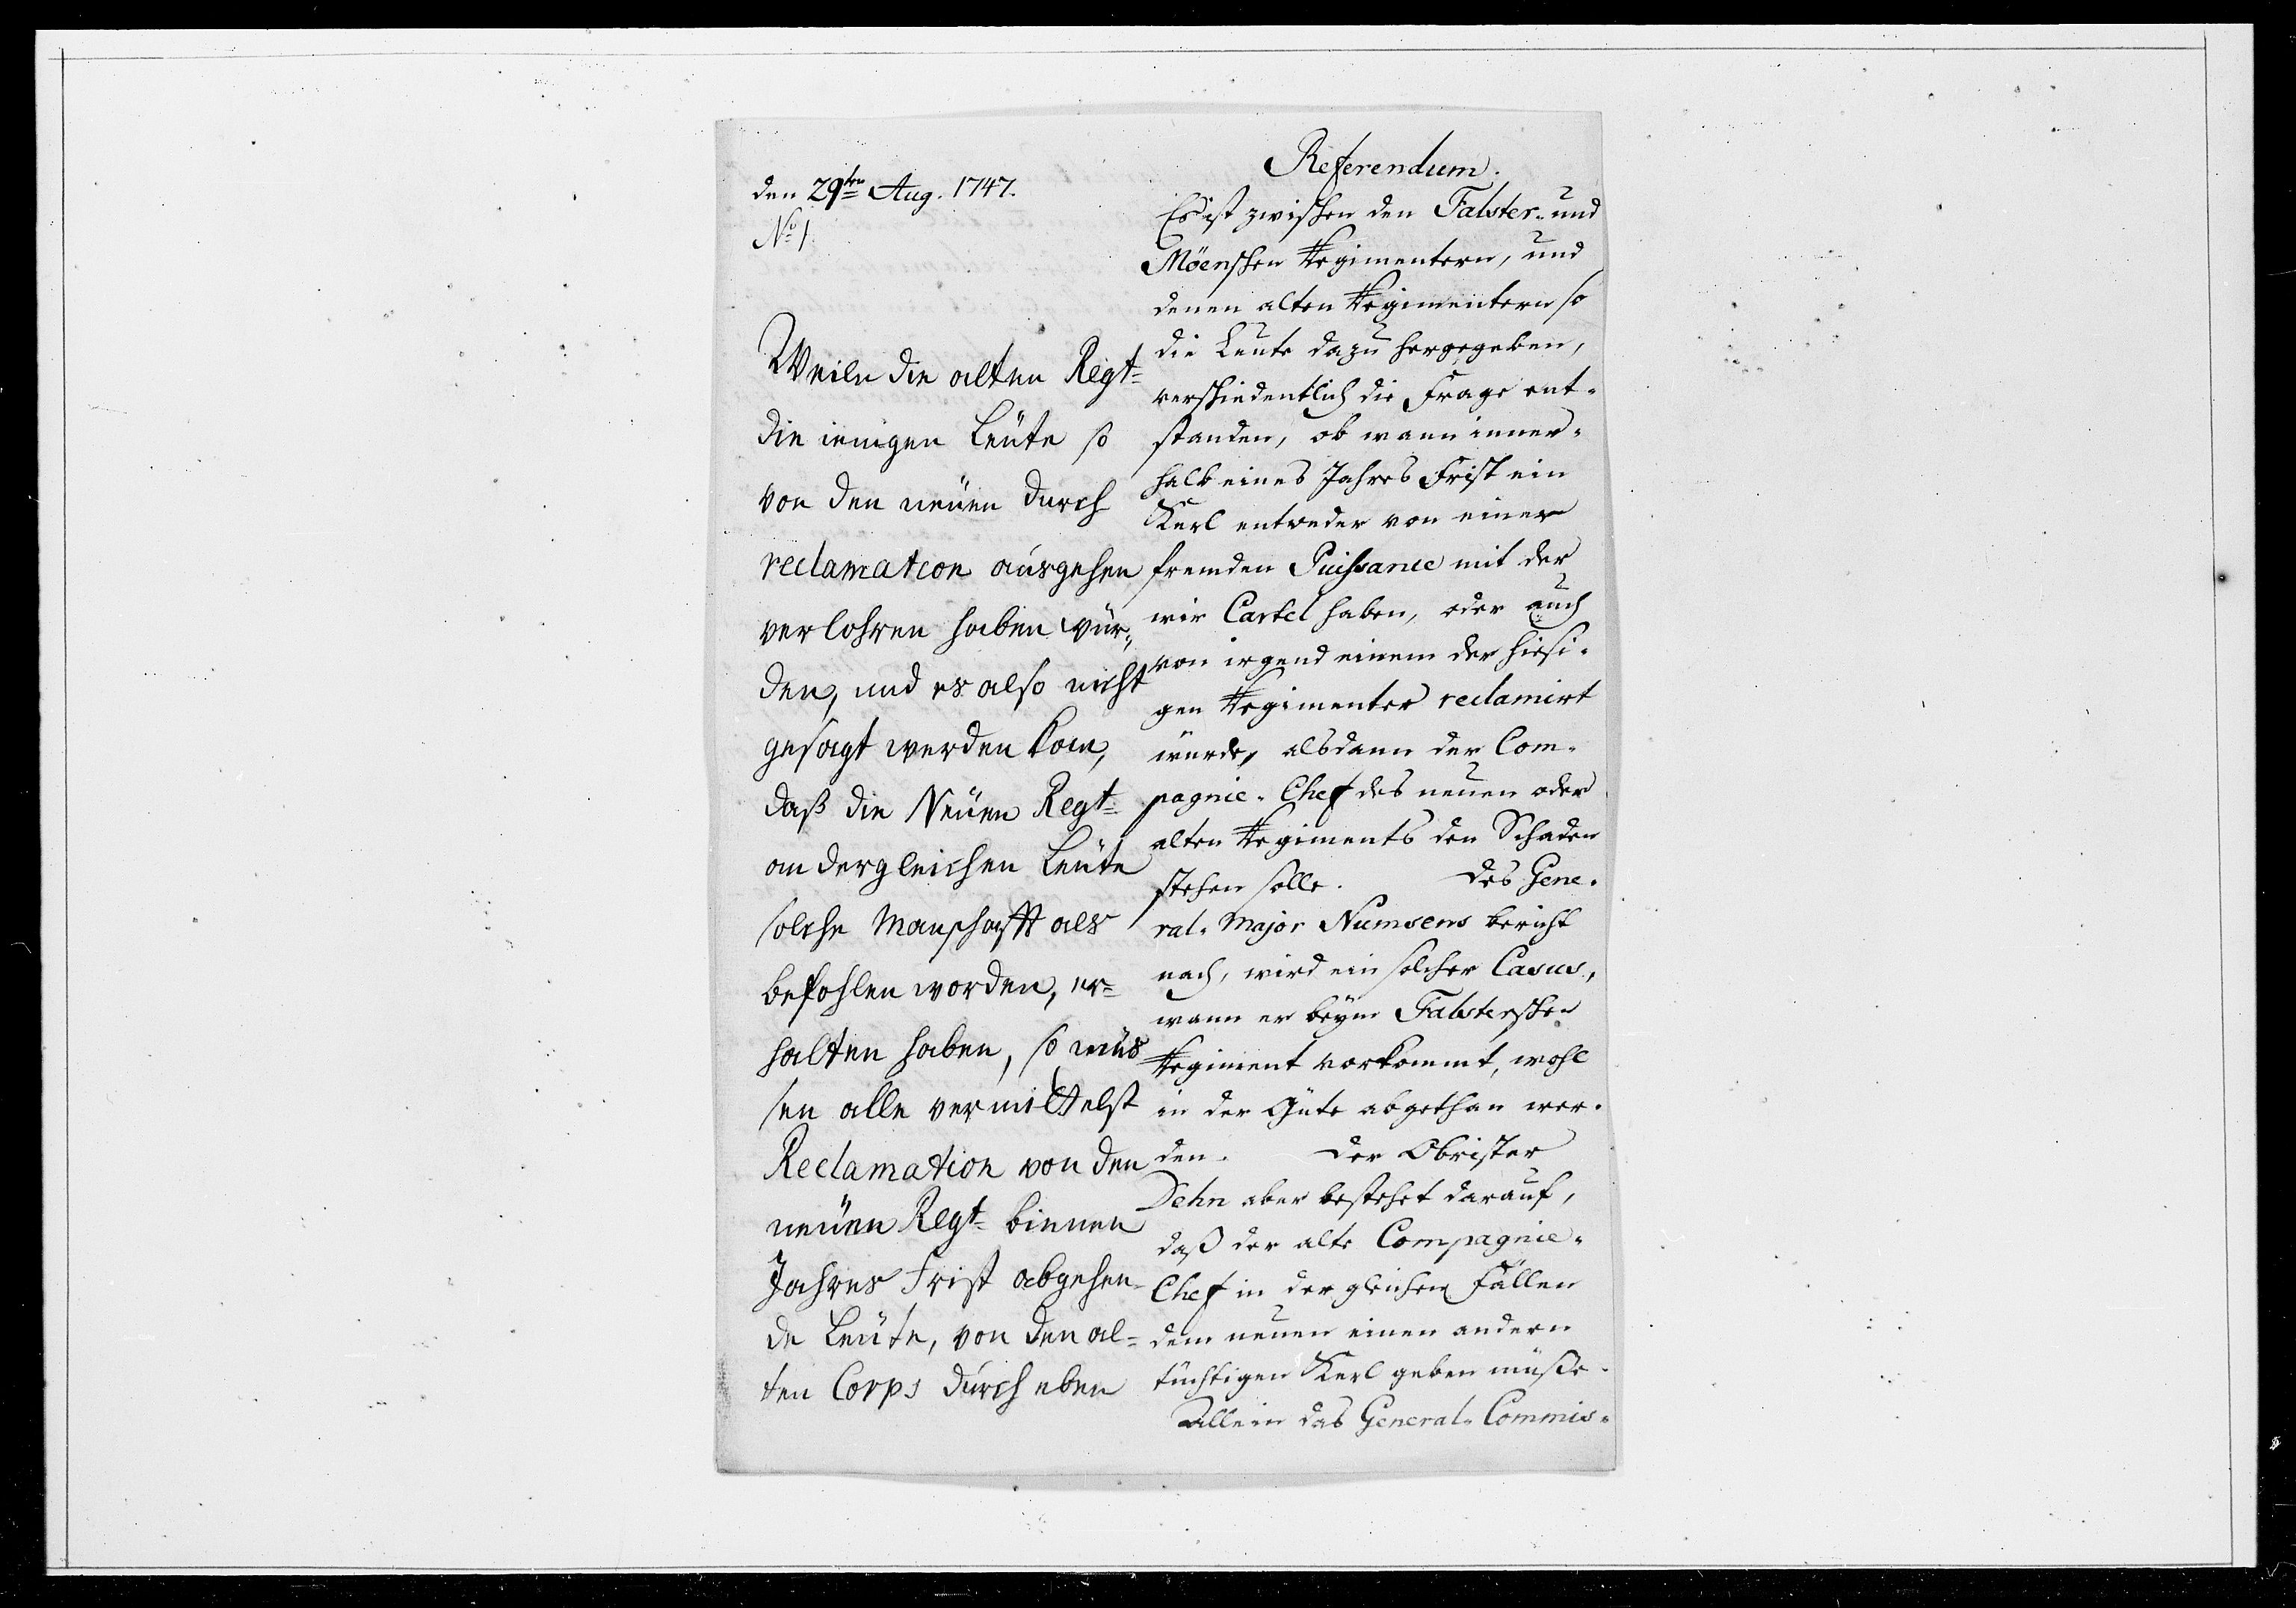 den 29ten Aug. 1747.
No 1
Weiln die alten Regt
die ienigen Leüte so
von den neüen durch
reclamation ausgehen
verlohren haben wür„
den, und es also nicht
gesagt werden kan,
daß die Neüen Regt
an dergleichen Leüte
solche Manschafft als
befohlen worden, er=
halten haben, so müs
sen alle vermittelst
Reclamation von den
neüen Regt binnen
Jahres Frist abgehen
de Leüte, von den al=
ten Corps durch eben
Referendum.
Es ist zwischen den Falster- und
Möenschen Regimentern, und
denen alten Regimentern so
die Leute dazu hergegeben,
verschiedentlich die Frage ent-
standen, ob wann inner-
halb eines Jahres Frist ein
Kerl entweder von einer
fremden Puissance mit der
wir Cartel haben, oder auch
von irgend einem der hiesi-
gen Regimenter reclamirt
würde, alsdann der Com-
pagnie-Chef des neuen oder
alten Regiments den Schaden
stehen solle. Des Gene-
ral-Major Numsens bericht
nach, wird ein solcher Casus,
wann er beym Falsterschen
Regiment vorkommt, wohl
in der Güte abgethan wer-
den. Der Obrister
Dehn aber bestehet darauf,
daß der alte Compagnie-
Chef in der gleichen Fällen
dem neuen einen andern
tüchtigen Kerl geben müße.
Allein das General-Commis-